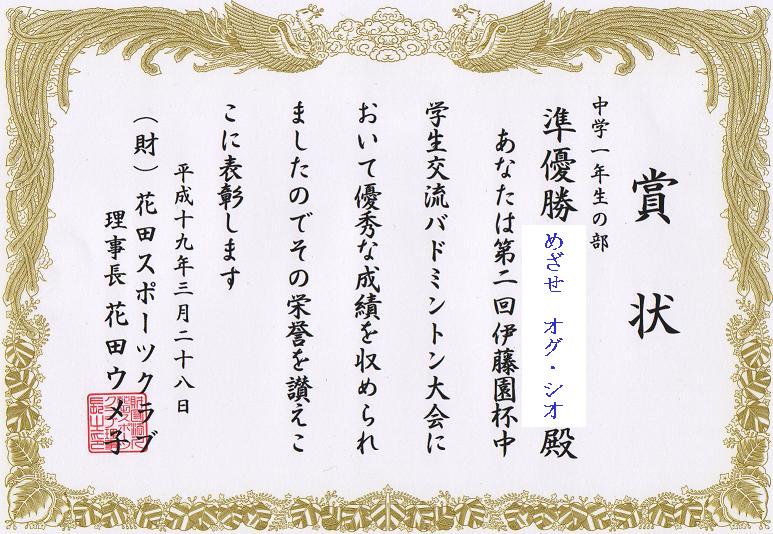 賞状
中学一年生の部
準優勝 めざせ オグ・シオ 殿
あなたは第二回伊藤園杯中
学生交流バドミントン大会に
おいて優秀な成績を収められ
ましたのでその栄誉を讃えこ
こに表彰します
平成十九年三月二十八日
(財)花田スポーツクラブ
理事長 花田ウメ子